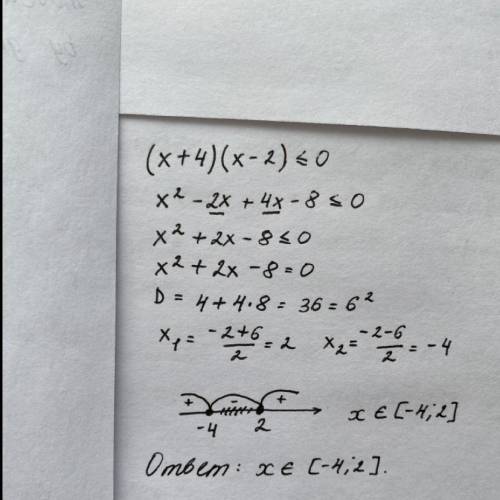 (x+4)(x-2)≤0
x² - 2x + 4x - 8 ≤ 0
x² + 2x - 8 ≤ 0
x² + 2x - 8 = 0
D = 4 + 4·8 = 36 = 6²
x₁ = (-2+6)/2 = 2 x₂ = (-2-6)/2 = -4
+ - + x ∈ [-4; 2]
-4 2
Ответ: x ∈ [-4; 2].